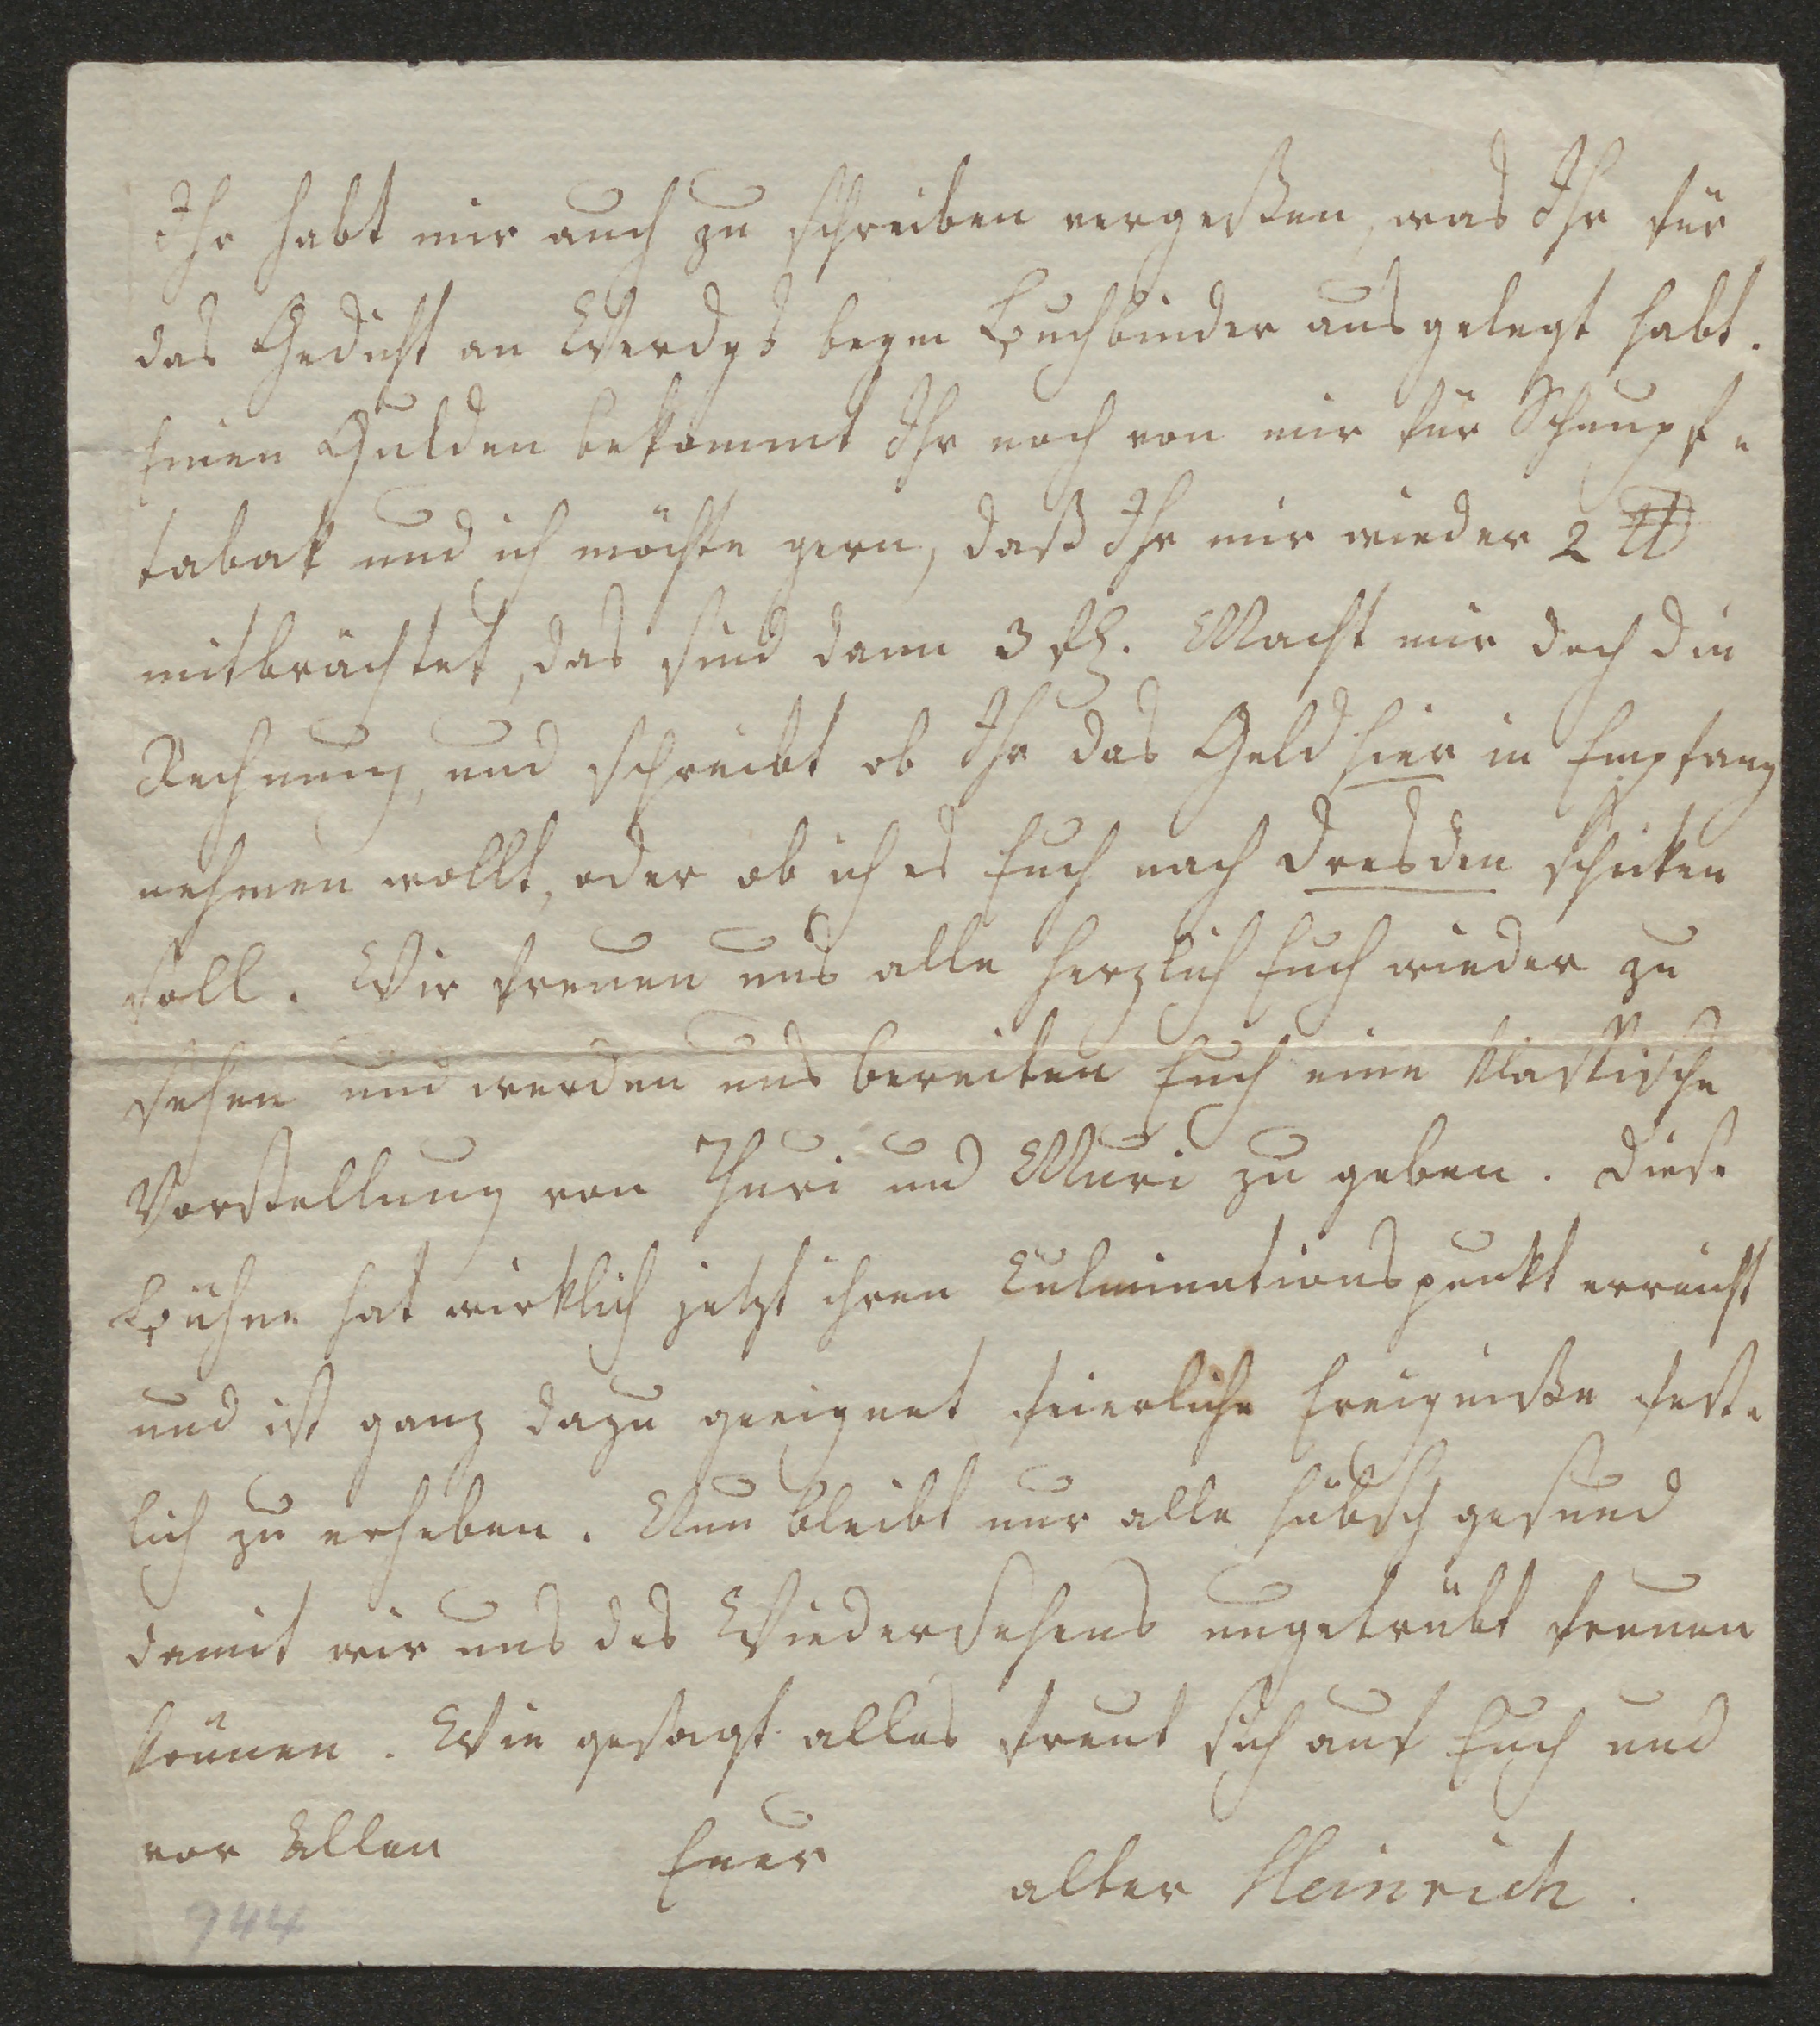 Ihr habt mir auch zu schreiben vergeßen, was Ihr für
das Gedicht an Werdys beym Buchbinder ausgelegt habt.
Einen Gulden bekommt Ihr noch von mir für Schnupf-
tabak und ich möchte gern, daß Ihr mir wieder 2 ℔
mitbrächtet, das sind dann 3 fl. Macht mir doch die
Rechnung, und schreibt ob Ihr das Geld hier in Empfang
nehmen wollt, oder ob ich es Euch nach Dresden schicken
soll. Wir freuen uns alle herzlich Euch wieder zu
sehen und werden uns bereiten Euch eine klassische
Vorstellung von Thuri und Muri zu geben. Diese
Bühne hat wirklich jetzt ihren Culminationspunkt erreicht
und ist ganz dazu geeignet feierliche Ereigniße fest-
lich zu erheben. Nun bleibt nur alle hübsch gesund
damit wir uns des Wiedersehens ungetrübt freuen
können. Wie gesagt alles freut sich auf Euch und
vor Allen Euer
alter Heinrich.
944